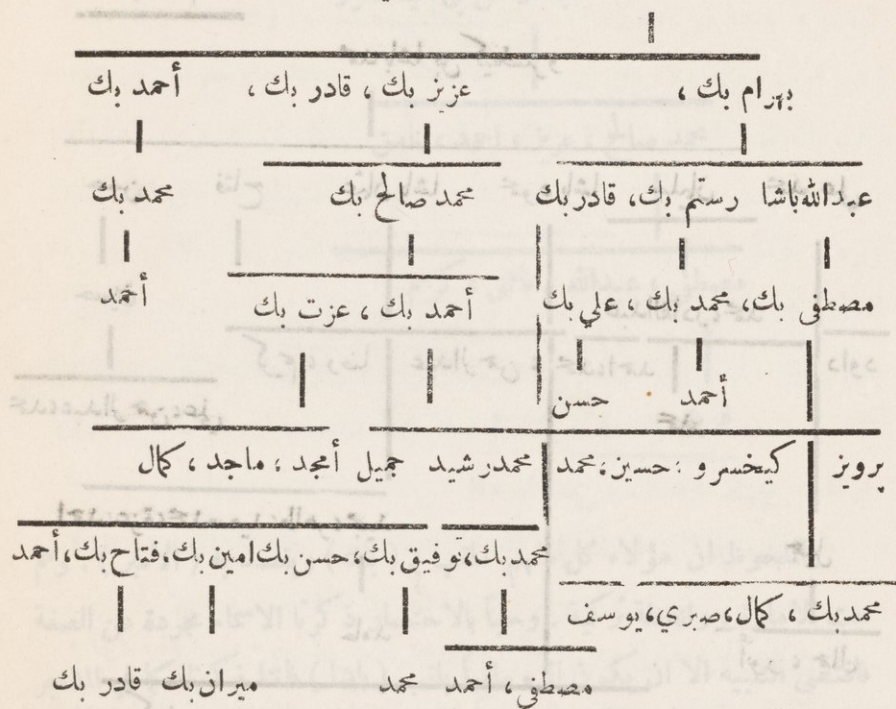 بهرام بك ، عزيز بك ، قادر بك ، أحمد بك
عبدالله باشا رستم بك، قادر بك محمد صالح بك محمد بك
مصطفى بك، محمد بك ، علي بك أحمد بك ، عزت بك أحمد
أحمد حسن
پرويز كيخسرو ؛ حسين ؛ محمد محمد رشيد جميل أمجد ؛ ماجد ، كمال
محمد بك، توفيق بك، حسن بك امين بك، فتاح بك، أحمد
محمد بك ، كمال، صبري، يوسف
مصطفى ، أحمد محمد ميران بك قادر بك